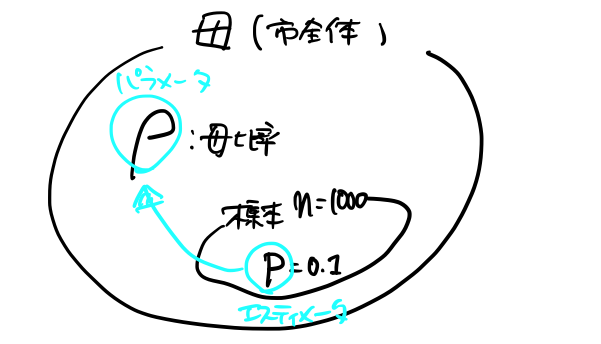 母(市全体)
パラメータ
P:母比率
標本 n=1000
P=0.1
エスティメータ